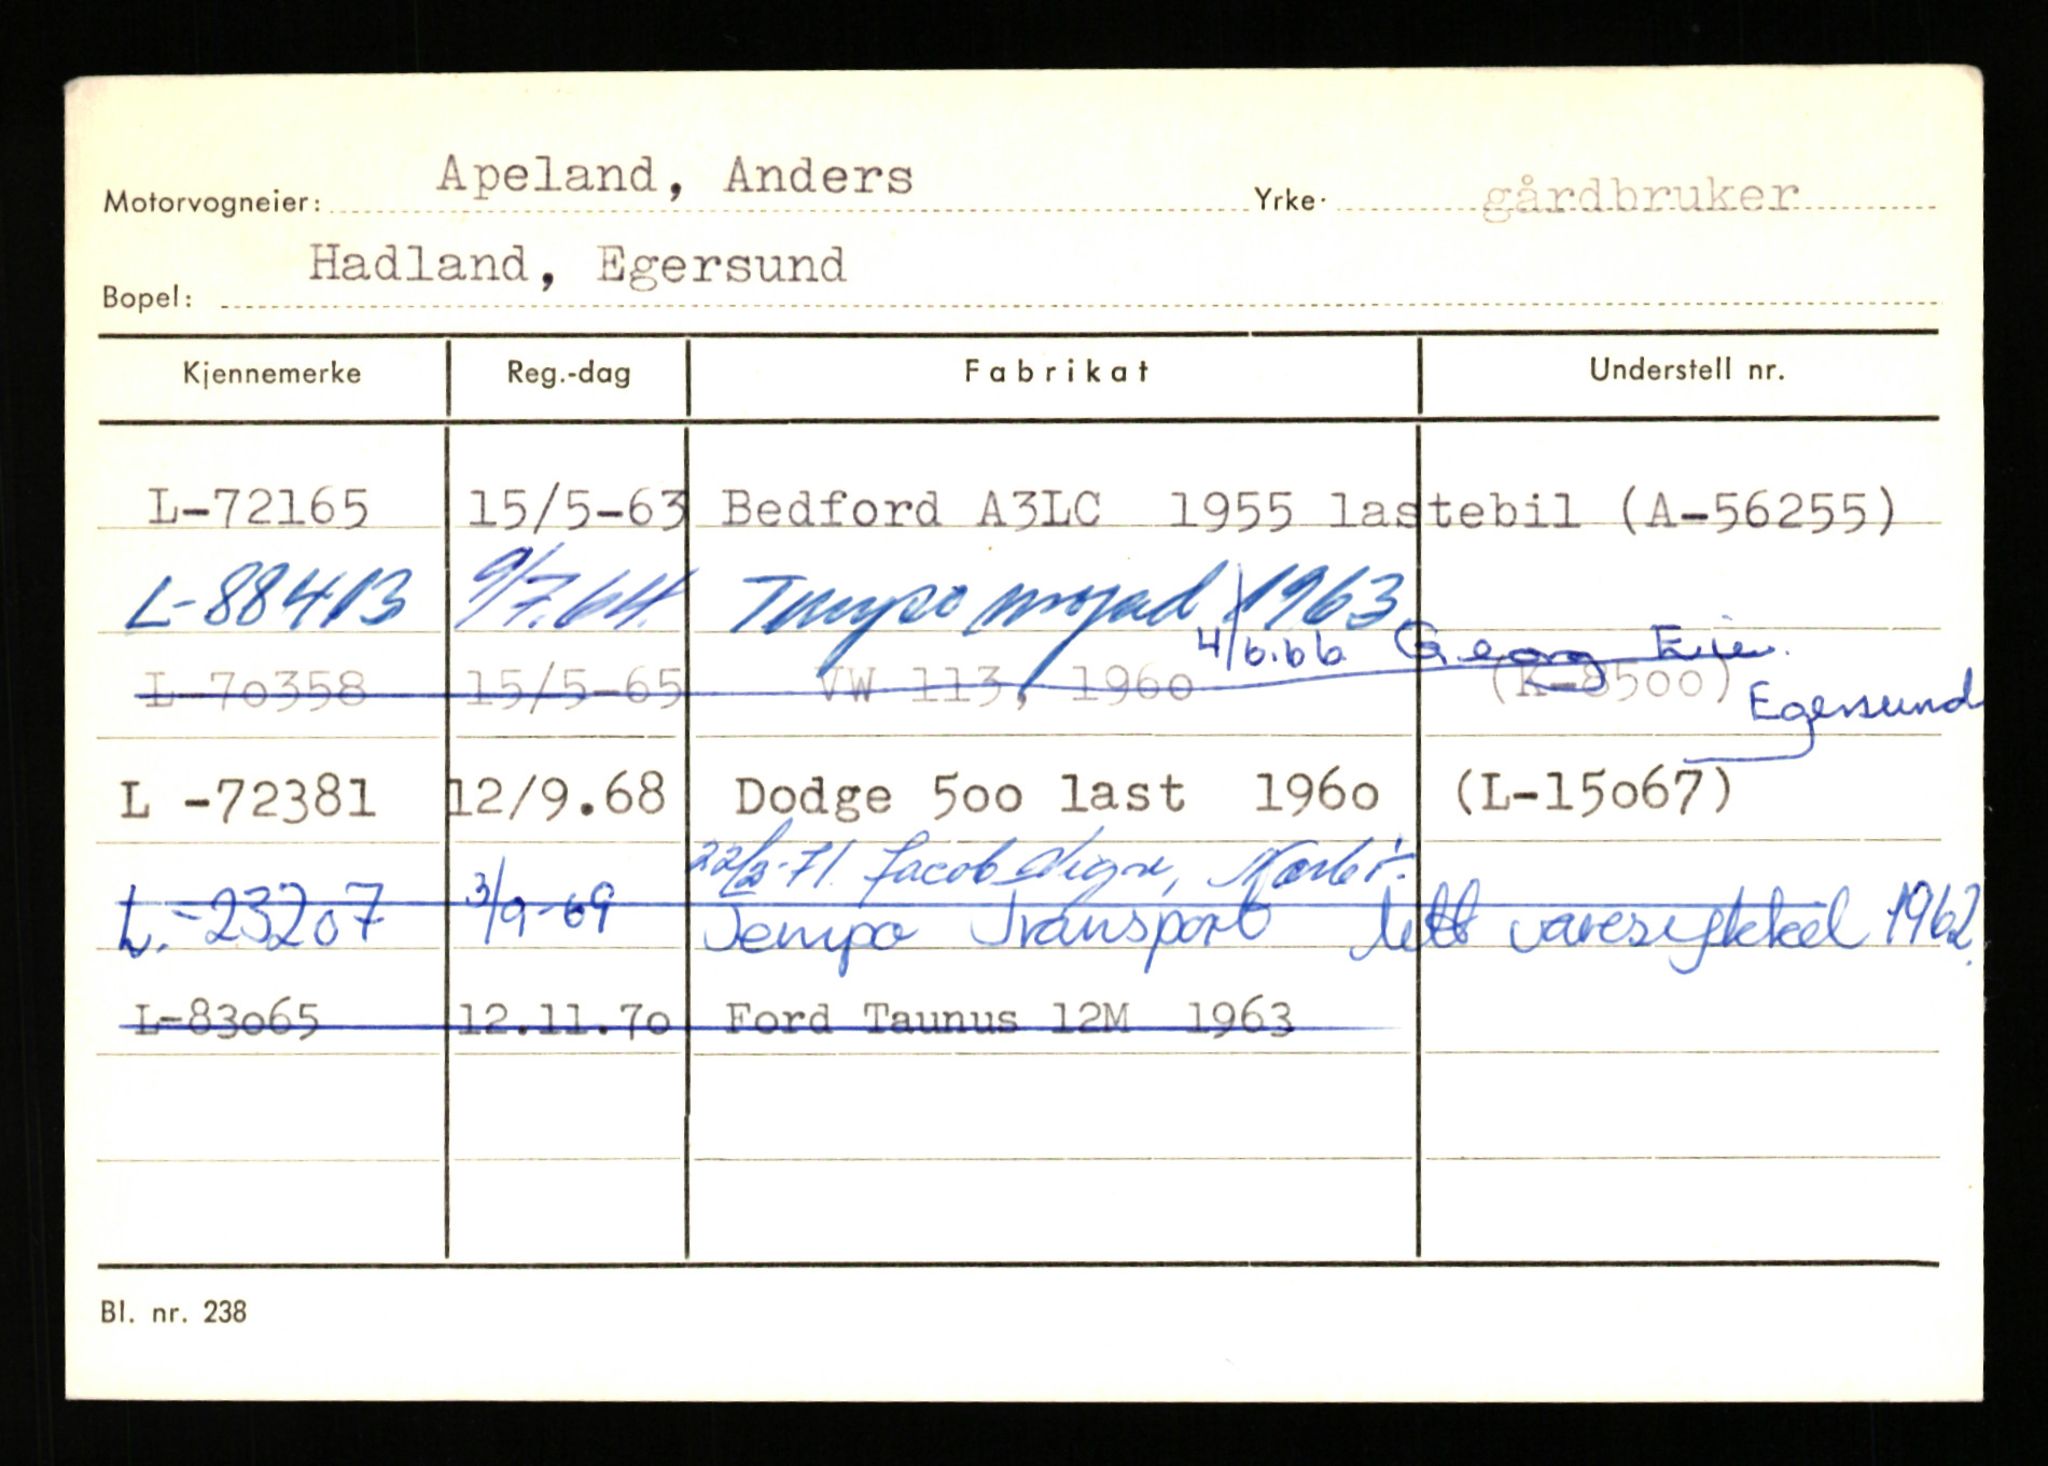 Motorvogneier: Apeland, Anders Yrke: gårdbruker
Bopel: Hadland, Egersund
Kjennemerke Reg.-dag Fabrikat Understell nr.
L-72165 15/5-63 Bedford A3LC 1955 lastebil (A-56255)
L-88413 9/7.64. Tempo moped 1963
4/6.66 Georg Eie.
L-70358 15/5-65 VW 113, 1960 (K-8500)
Egersund
L -72381 12/9.68 Dodge 500 last 1960 (L-15067)
22/3-71. Jacob
L.-23207 3/9-69 Tempo Transport lett varesykkel 1962.
L-83065 12.11.70 Ford Taunus 12M 1963
Bl. nr. 238